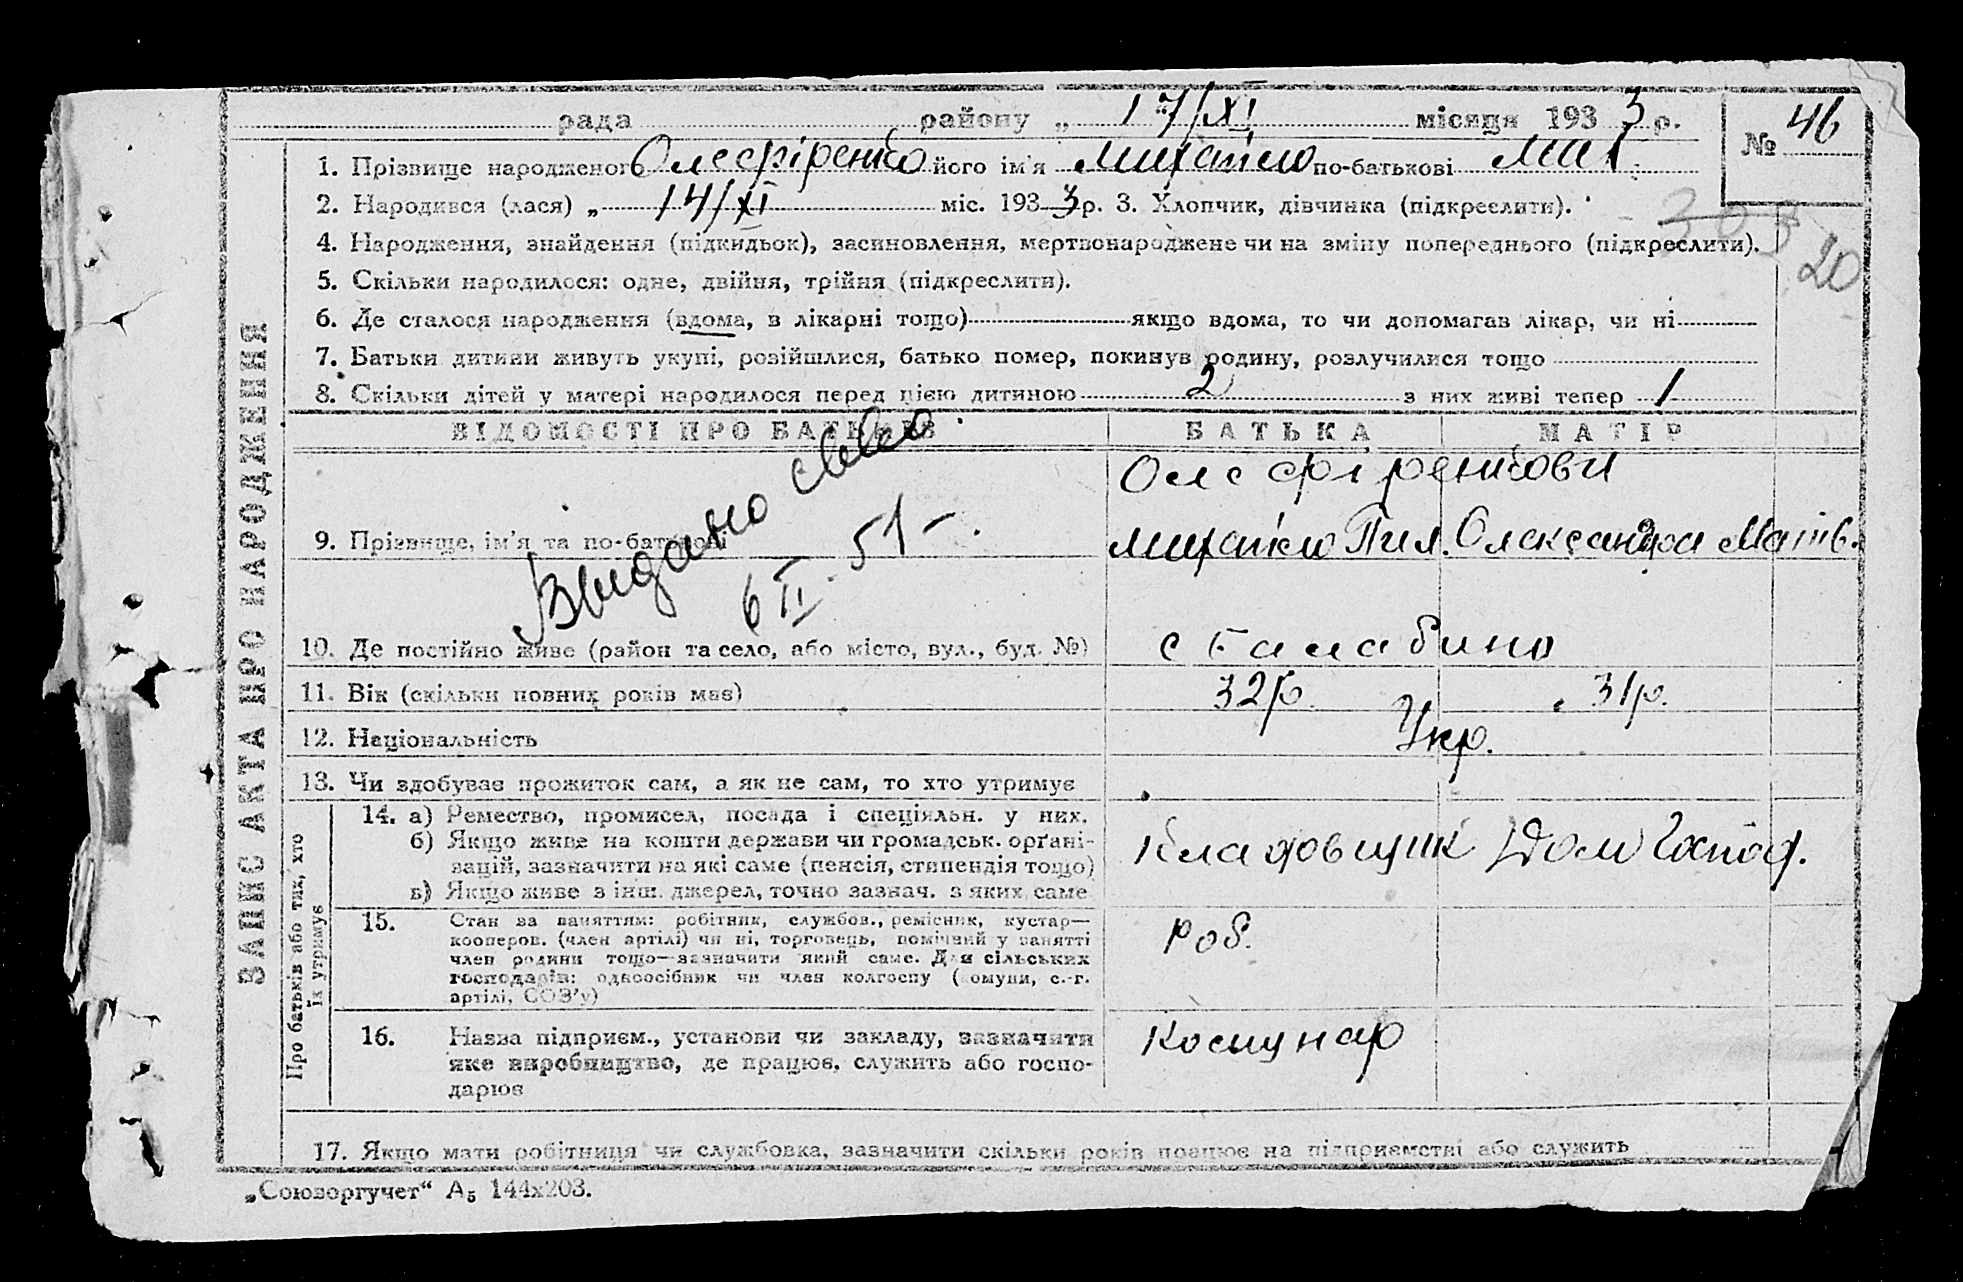 рада району „ 17/XI місяця 1933 р. № 46
1. Прізвище народженого Олефіренко його ім'я Михайло по-батькові Мих.
2. Народився (лася) „ 14/XI міс. 1933 р. 3. Хлопчик, дівчинка (підкреслити).
4. Народження, знайдення (підкидьок), засиновлення, мертвонароджене чи на зміну попереднього (підкреслити).
20
5. Скільки народилося: одне, двійня, трійня (підкреслити).
6. Де сталося народження (вдома, в лікарні тощо) якщо вдома, то чи допомагав лікар, чи ні
7. Батьки дитини живуть укупі, розійшлися, батько помер, покинув родину, розлучилися тощо
8. Скільки дітей у матері народилося перед цією дитиною 2 з них живі тепер 1
ЗАПИС АКТА ПРО НАРОДЖЕННЯ
ВІДОМОСТІ ПРО БАТЬКІВ БАТЬКА МАТІР
Олефіренкови
9. Прізвище, ім'я та по-батькові Михайло Пил. Олександра Матв.
Выдано св-во
6 II. 51 –.
10. Де постійно живе (район та село, або місто, вул., буд. №) с Балабино
11. Вік (скільки повних років має) 32 р. 31 р.
12. Національність Укр.
13. Чи здобуває прожиток сам, а як не сам, то хто утримує
Про батьків або тих, хто їх утримує
14. а) Ремество, промисел, посада і спеціяльн. у них.
б) Якщо живе на кошти держави чи громадськ. орґані-
зацій, зазначити на які саме (пенсія, стипендія тощо) Кладовщик Дом Господ.
в) Якщо живе з інш. джерел, точно зазнач. з яких саме
15. Стан за заняттям: робітник, службов., ремісник, кустар—
кооперов. (член артілі) чи ні, торговець, помічний у занятті Роб.
член родини тощо—зазначити який саме. Для сільських
господарів: одноосібник чи член колгоспу (комуни, с.-г.
артілі, СОЗ'у)
16. Назва підприєм., установи чи закладу, зазначити Комунар
яке виробництво, де працює, служить або госпо-
дарює
17. Якщо мати робітниця чи службовка, зазначити скільки років працює на підприємстві або служить
„Союзоргучет“ А₅ 144х203.